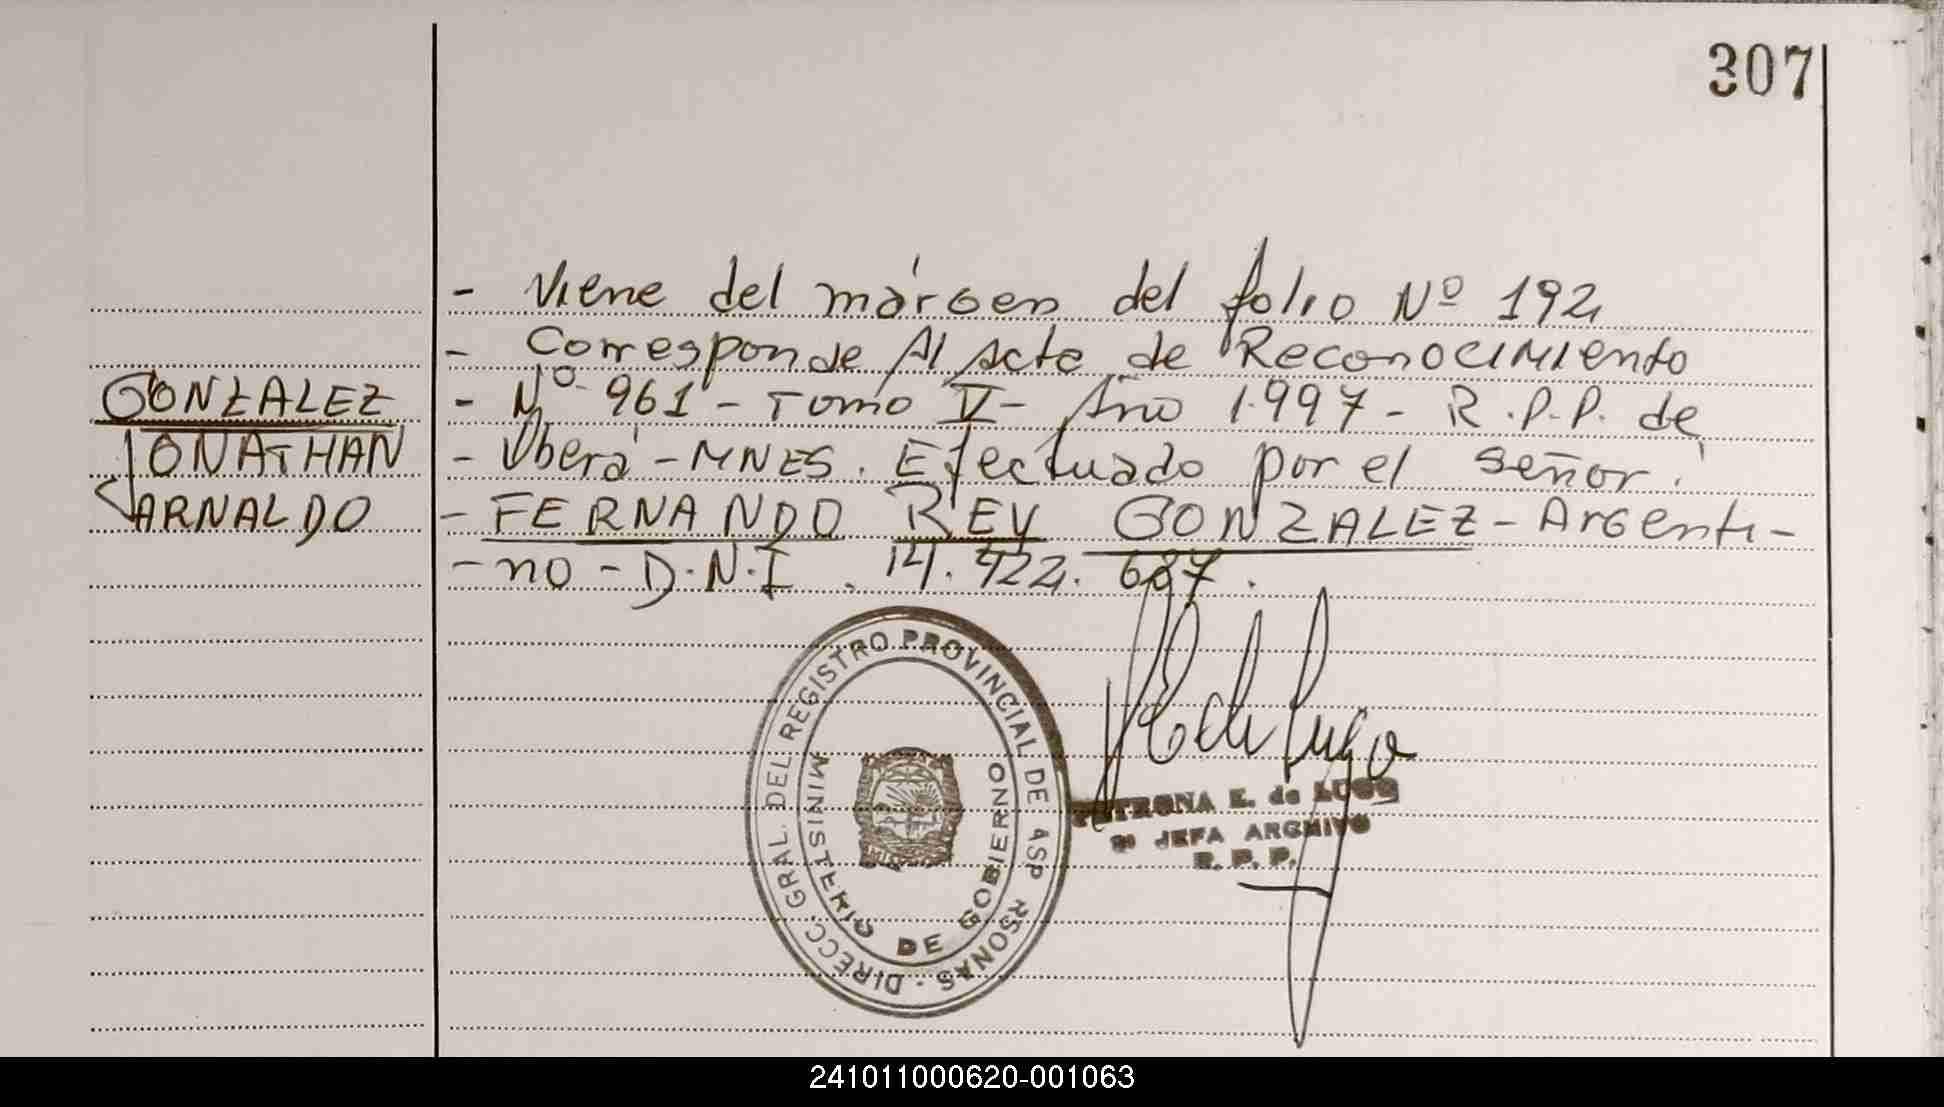 307
- Viene del márgen del folio Nº 192
- Corresponde Al Acta de Reconocimiento
GONZALEZ
- Nº 961 - Tomo V - Año 1.997 - R.P.P. de
JONATHAN
- Oberá - MNES. Efectuado por el señor:
ARNALDO
- FERNANDO REY GONZALEZ - Argenti-
- no - D.N.I. 14.422.687.
DIRECC. GRAL. DEL REGISTRO PROVINCIAL DE
MINISTERIO DE GOBIERNO
PETRONA E. de LUGO
JEFA ARCHIVO
R. P. P.
241011000620-001063